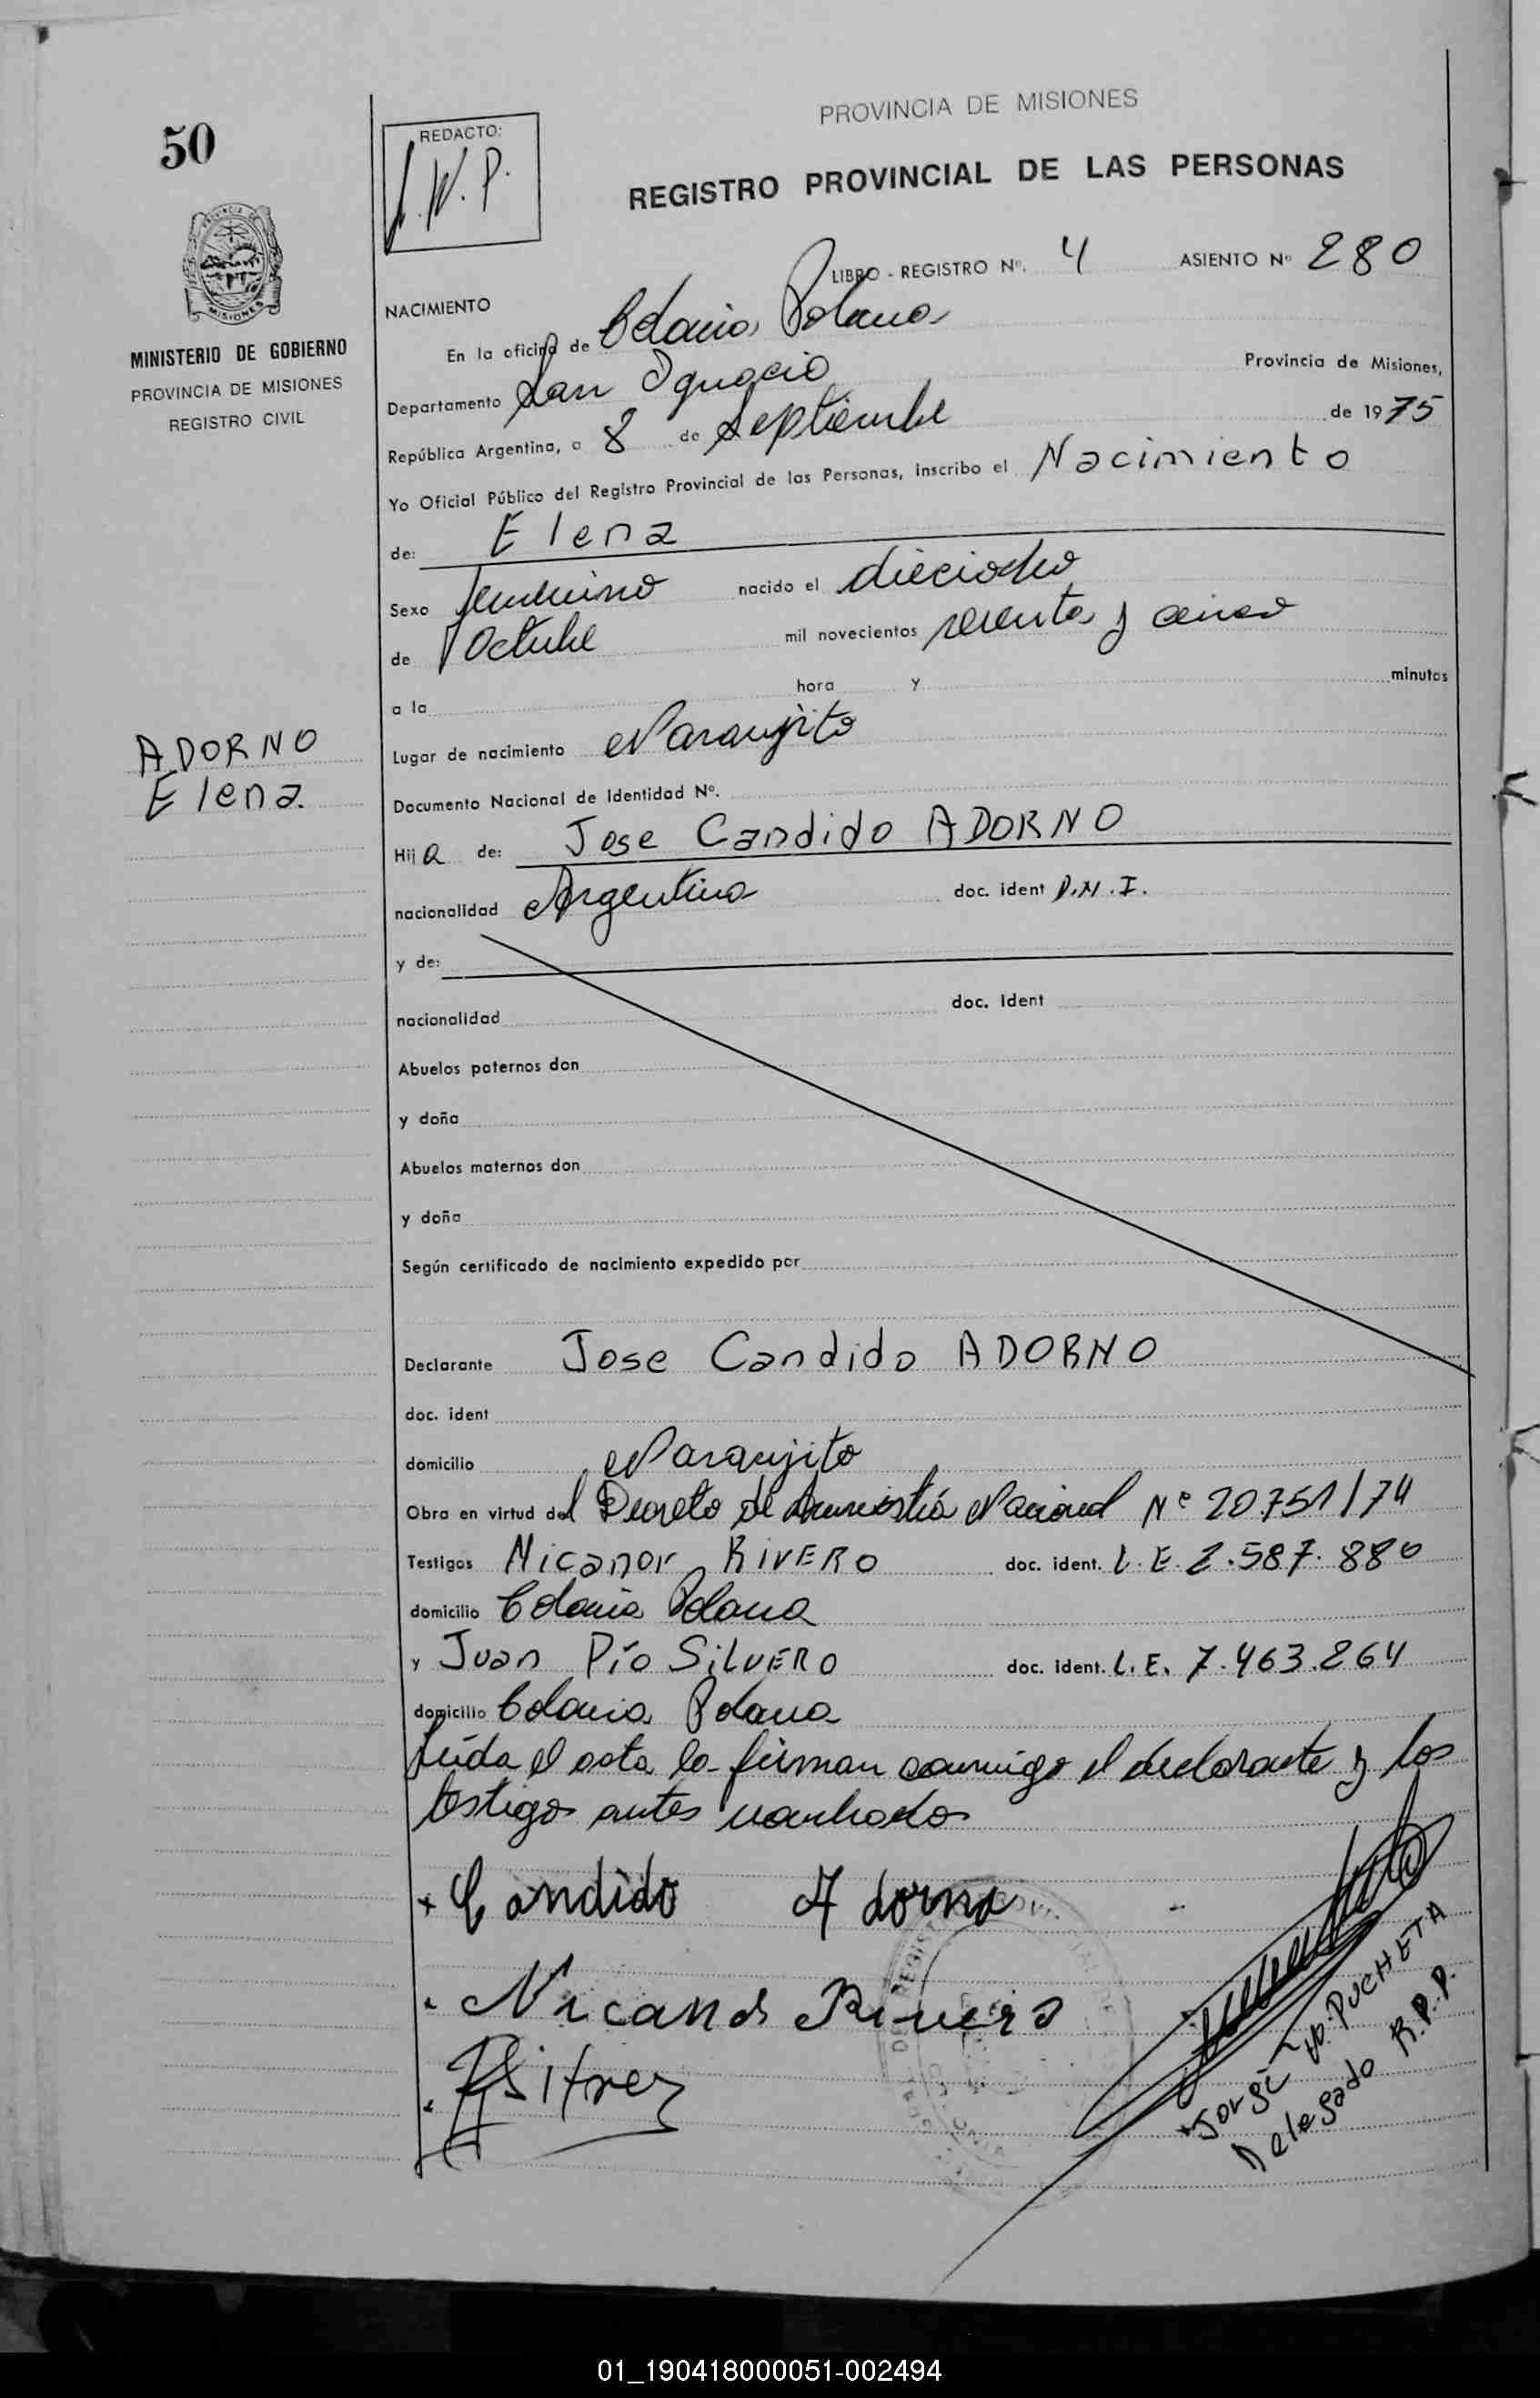 50
REDACTO:
PROVINCIA DE MISIONES
REGISTRO PROVINCIAL DE LAS PERSONAS
MISIONES
MINISTERIO DE GOBIERNO
PROVINCIA DE MISIONES
REGISTRO CIVIL
LIBRO - REGISTRO Nº. 4 ASIENTO Nº 280
NACIMIENTO
En la oficina de Colonia Polana
Departamento San Ignacio Provincia de Misiones,
República Argentina, a 8 de Septiembre de 1975
Yo Oficial Público del Registro Provincial de las Personas, inscribo el Nacimiento
de: Elena
Sexo femenino nacido el dieciocho
de Octubre mil novecientos sesenta y cinco
a la hora y minutos
Lugar de nacimiento Naranjito
ADORNO
Elena.
Documento Nacional de Identidad Nº.
Hija de: Jose Candido ADORNO
nacionalidad Argentina doc. ident D.N.I.
y de:
nacionalidad doc. Ident
Abuelos paternos don
y doña
Abuelos maternos don
y doña
Según certificado de nacimiento expedido por
Declarante Jose Candido ADORNO
doc. ident
domicilio Naranjito
Obra en virtud del Decreto de Amnistía Nacional Nº 20.751/74
Testigos Nicanor RIVERO doc. ident. L.E. 2.587.880
domicilio Colonia Polana
y Juan Pío SILVERO doc. ident. L.E. 7.463.264
domicilio Colonia Polana
Leída el acta la firman conmigo el declarante y los
testigos antes nombrados
Candido Adorno
Nicanor Rivero
Jorge PUCHETA
Delegado R.P.P.
01_190418000051-002494